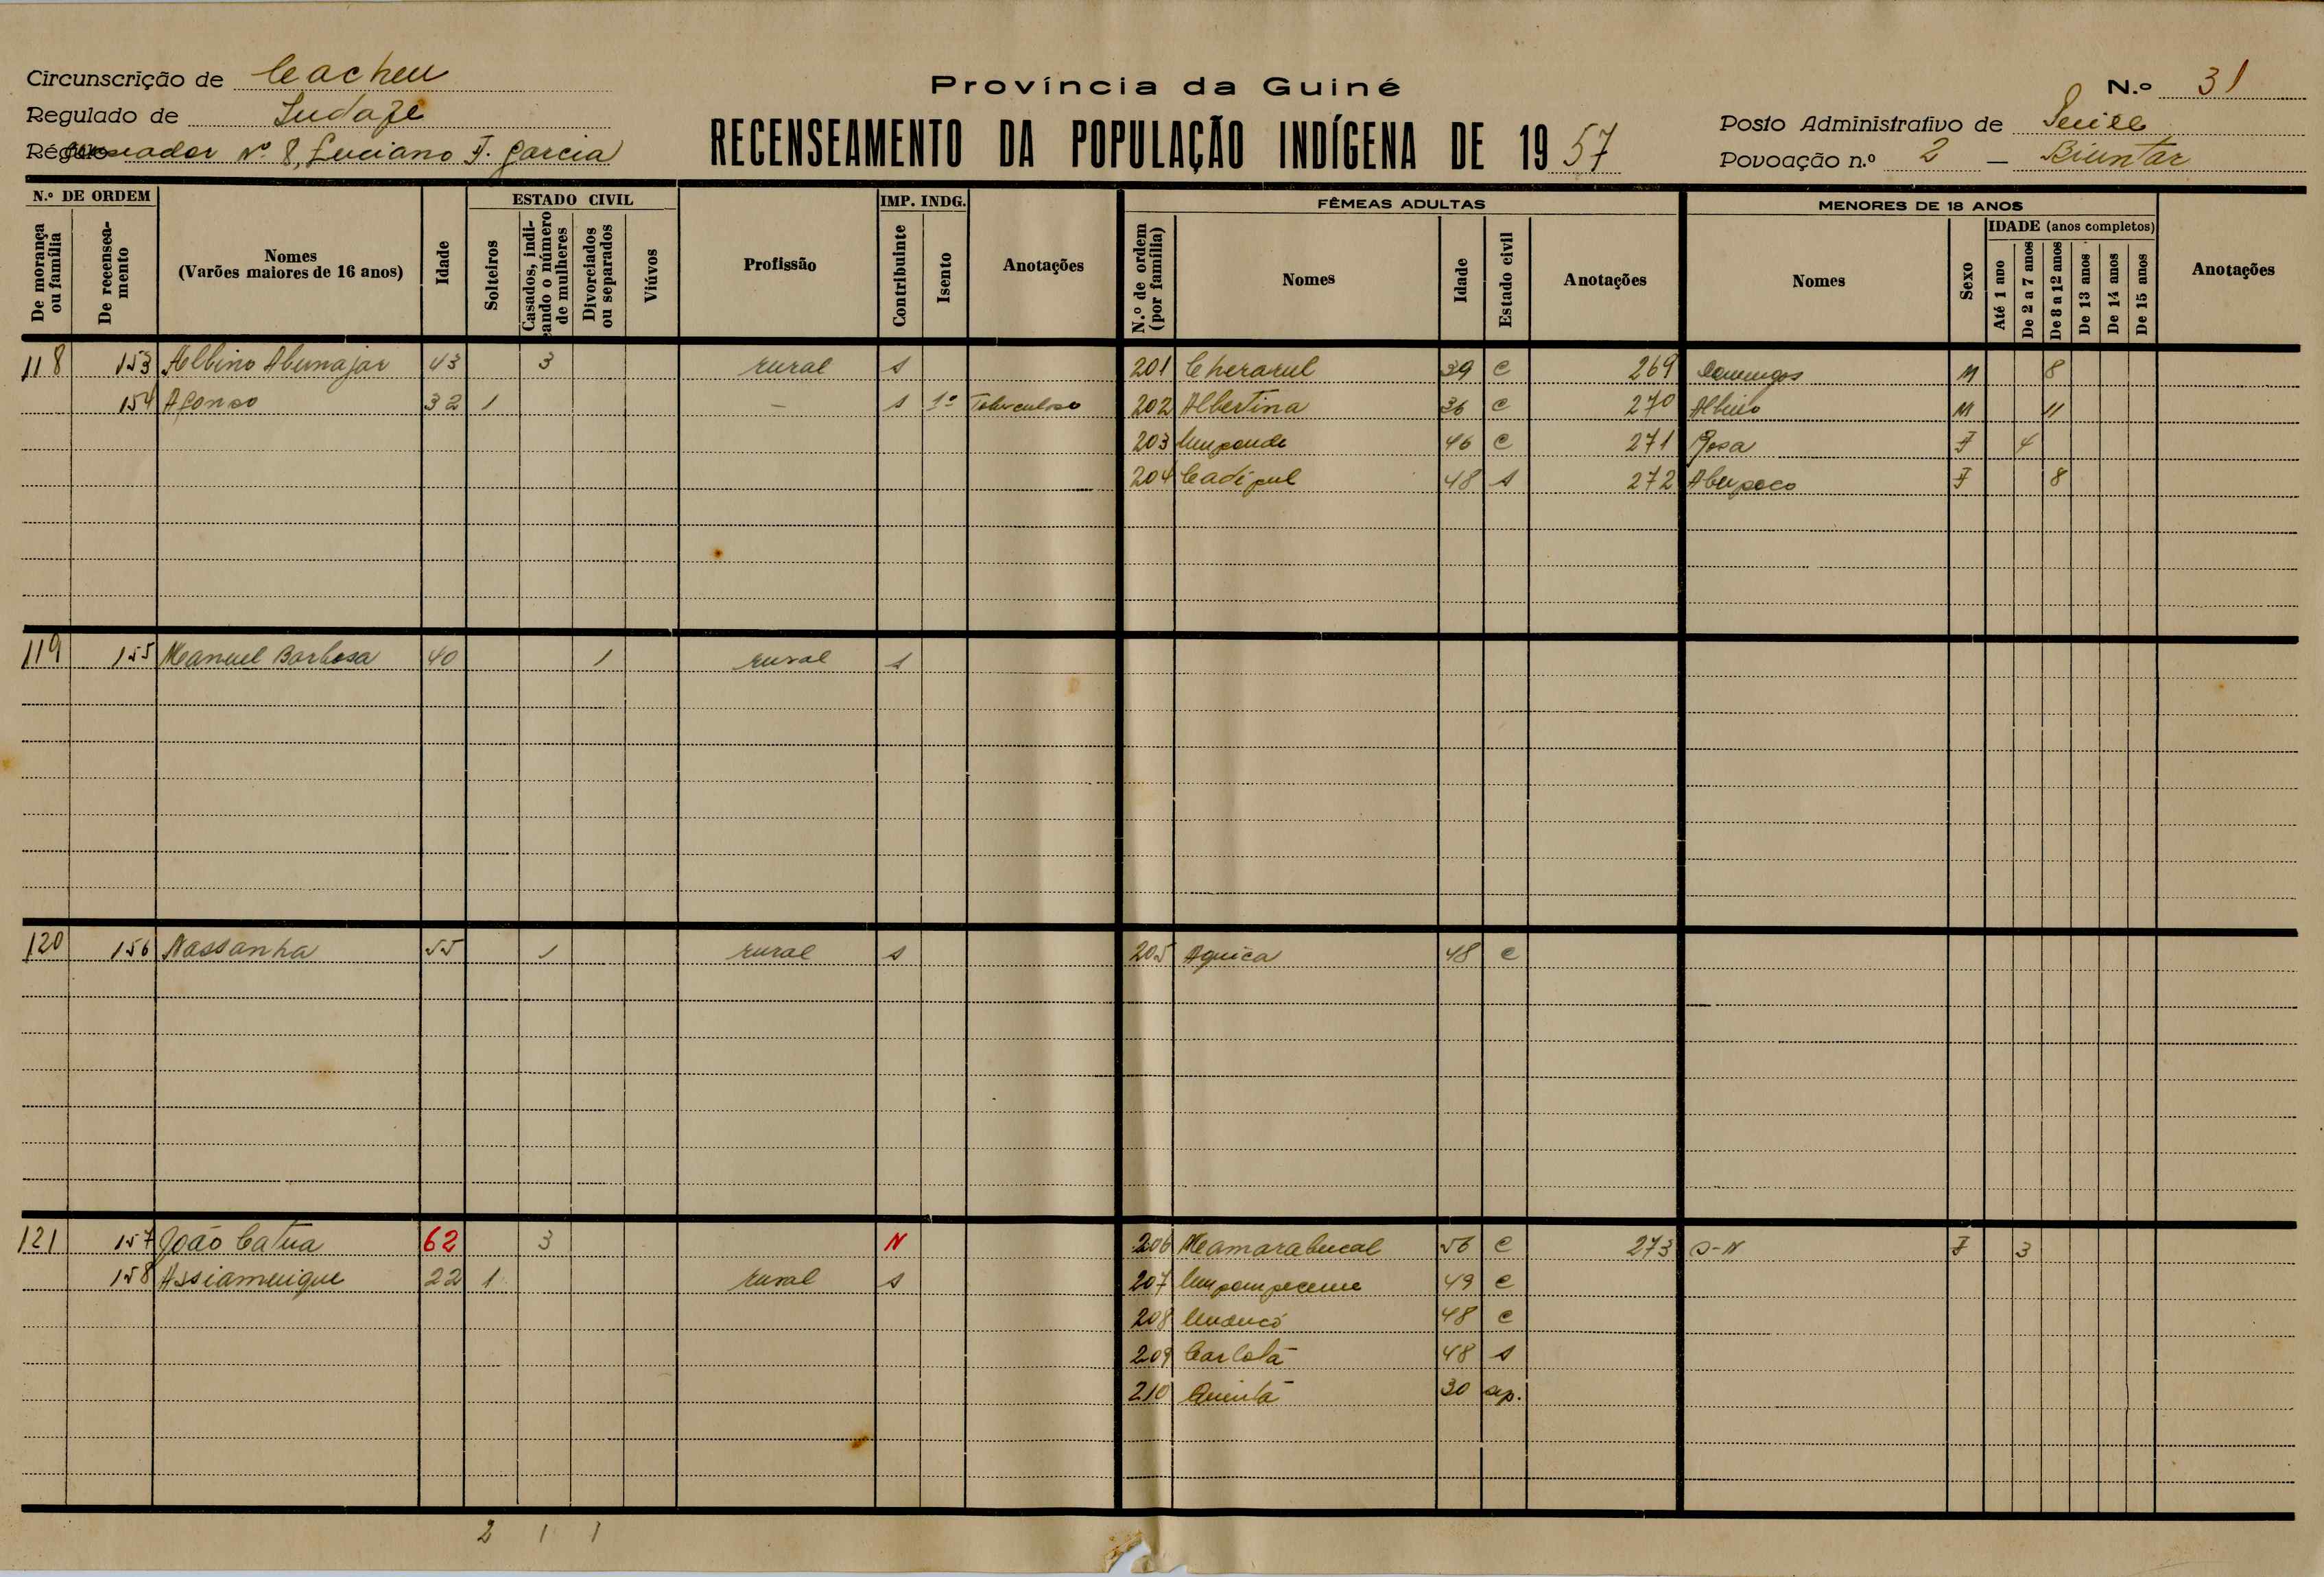 Circunscrição de Cacheu
Regulado de
Província da Guiné
N.º 31
RECENSEAMENTO DA POPULAÇÃO INDÍGENA DE 1957
Posto Administrativo de
Nº 8, Luciano F. Garcia
Povoação n.º 2 — Biuntar
N.º DE ORDEM
De morança ou família
De recenseamento
Nomes
(Varões maiores de 16 anos)
Idade
ESTADO CIVIL
Solteiros
Casados, indicando o número de mulheres
Divorciados ou separados
Viúvos
Profissão
IMP. INDG.
Contribuinte
Isento
Anotações
FÊMEAS ADULTAS
N.º de ordem (por família)
Nomes
Idade
Estado civil
Anotações
MENORES DE 18 ANOS
Nomes
Sexo
IDADE (anos completos)
Até 1 ano
De 2 a 7 anos
De 8 a 12 anos
De 13 anos
De 14 anos
De 15 anos
Anotações
118 153 Albino Abunajar 43 3 rural s 201 Cherarul 39 c 269 Domingos M 8
154 Afonso 32 1 — s 1º Tuberculoso 202 Albertina 36 c 270 Albino M 11
203 46 c 271 Rosa F 4
204 Cadipul 48 s 272 Abupoco F 8
119 155 Manuel Barbosa 40 1 rural s
120 156 Nassanha 55 1 rural s 205 Aquica 48 c
121 157 João Catua 62 3 N 206 Mamarabucal 56 c 273 S-N F 3
158 Assiamuique 22 1 rural s 207 49 c
208 48 c
209 Carlota 48 s
210 Quinta 30 sep.
2 1 1